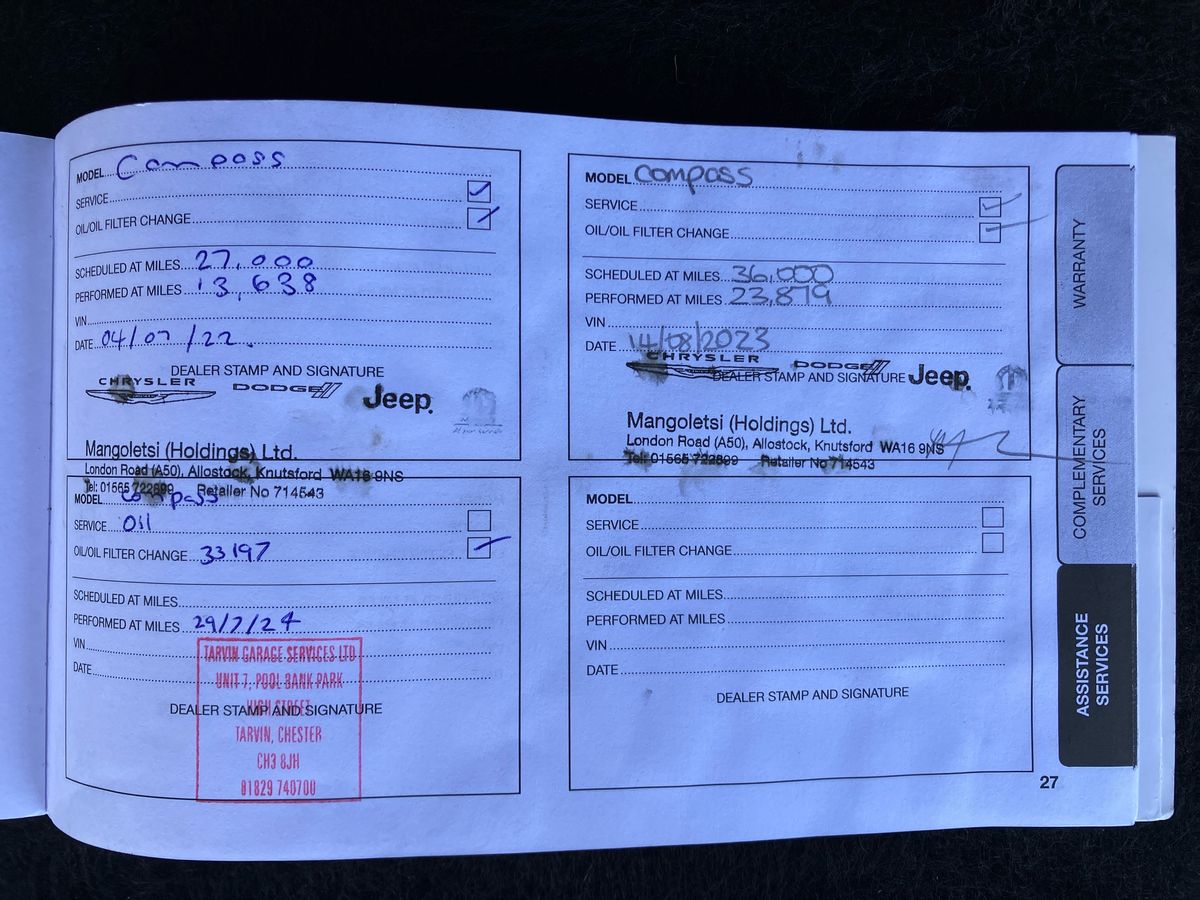 MODEL Compass
SERVICE
OIL/OIL FILTER CHANGE
SCHEDULED AT MILES 27,000
PERFORMED AT MILES 13,638
VIN
DATE 04/07/22.
DEALER STAMP AND SIGNATURE
CHRYSLER DODGE Jeep.
Mangoletsi (Holdings) Ltd.
London Road (A50), Allostock, Knutsford WA16 9NS
Tel: 01565 722899 Retailer No 714543
MODEL Compass
SERVICE
OIL/OIL FILTER CHANGE
SCHEDULED AT MILES 36,000
PERFORMED AT MILES 23,879
VIN
DATE 14/08/2023
CHRYSLER DODGE Jeep.
DEALER STAMP AND SIGNATURE
Mangoletsi (Holdings) Ltd.
London Road (A50), Allostock, Knutsford WA16 9NS
Tel: 01565 722899 Retailer No 714543
MODEL Compass
SERVICE Oil
OIL/OIL FILTER CHANGE 33197
SCHEDULED AT MILES
PERFORMED AT MILES 29/7/24
VIN
DATE
DEALER STAMP AND SIGNATURE
TARVIN GARAGE SERVICES LTD
UNIT 7, POOL BANK PARK
HIGH STREET
TARVIN, CHESTER
CH3 8JH
01829 740700
MODEL
SERVICE
OIL/OIL FILTER CHANGE
SCHEDULED AT MILES
PERFORMED AT MILES
VIN
DATE
DEALER STAMP AND SIGNATURE
27
WARRANTY
COMPLEMENTARY
SERVICES
ASSISTANCE
SERVICES